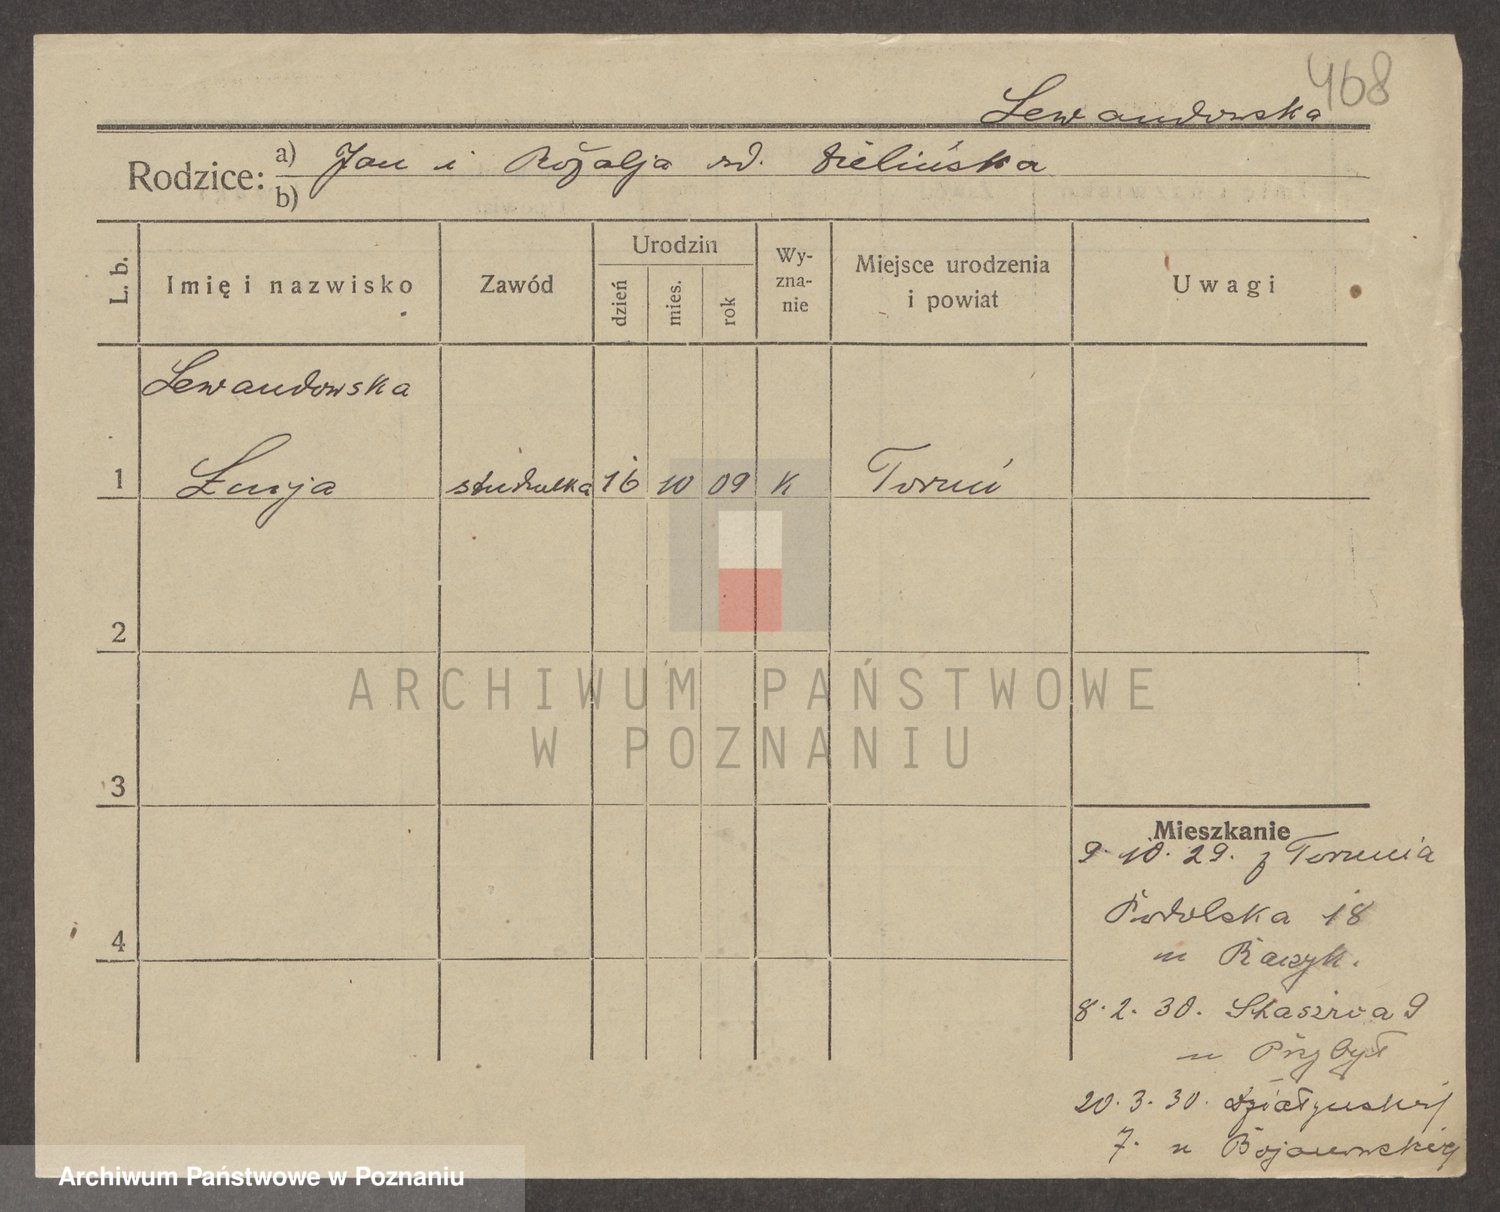 468
Lewandowska
Rodzice: a) Jan i Rozalja rd. Zielińska
b)
L. b.
Imię i nazwisko
Zawód
Urodzin
dzień
mies.
rok
Wy-
zna-
nie
Miejsce urodzenia
i powiat
Uwagi
Lewandowska
1 Łucja studentka 16 10 09 K Toruń
2
3
4
Mieszkanie
9.10.29. z Torunia
Podolska 18
u Raczyk.
8.2.30. Staszica 9
u Przybył
20.3.30. Działyńskiej
7. u Bojanowskiej
ARCHIWUM PAŃSTWOWE
W POZNANIU
Archiwum Państwowe w Poznaniu